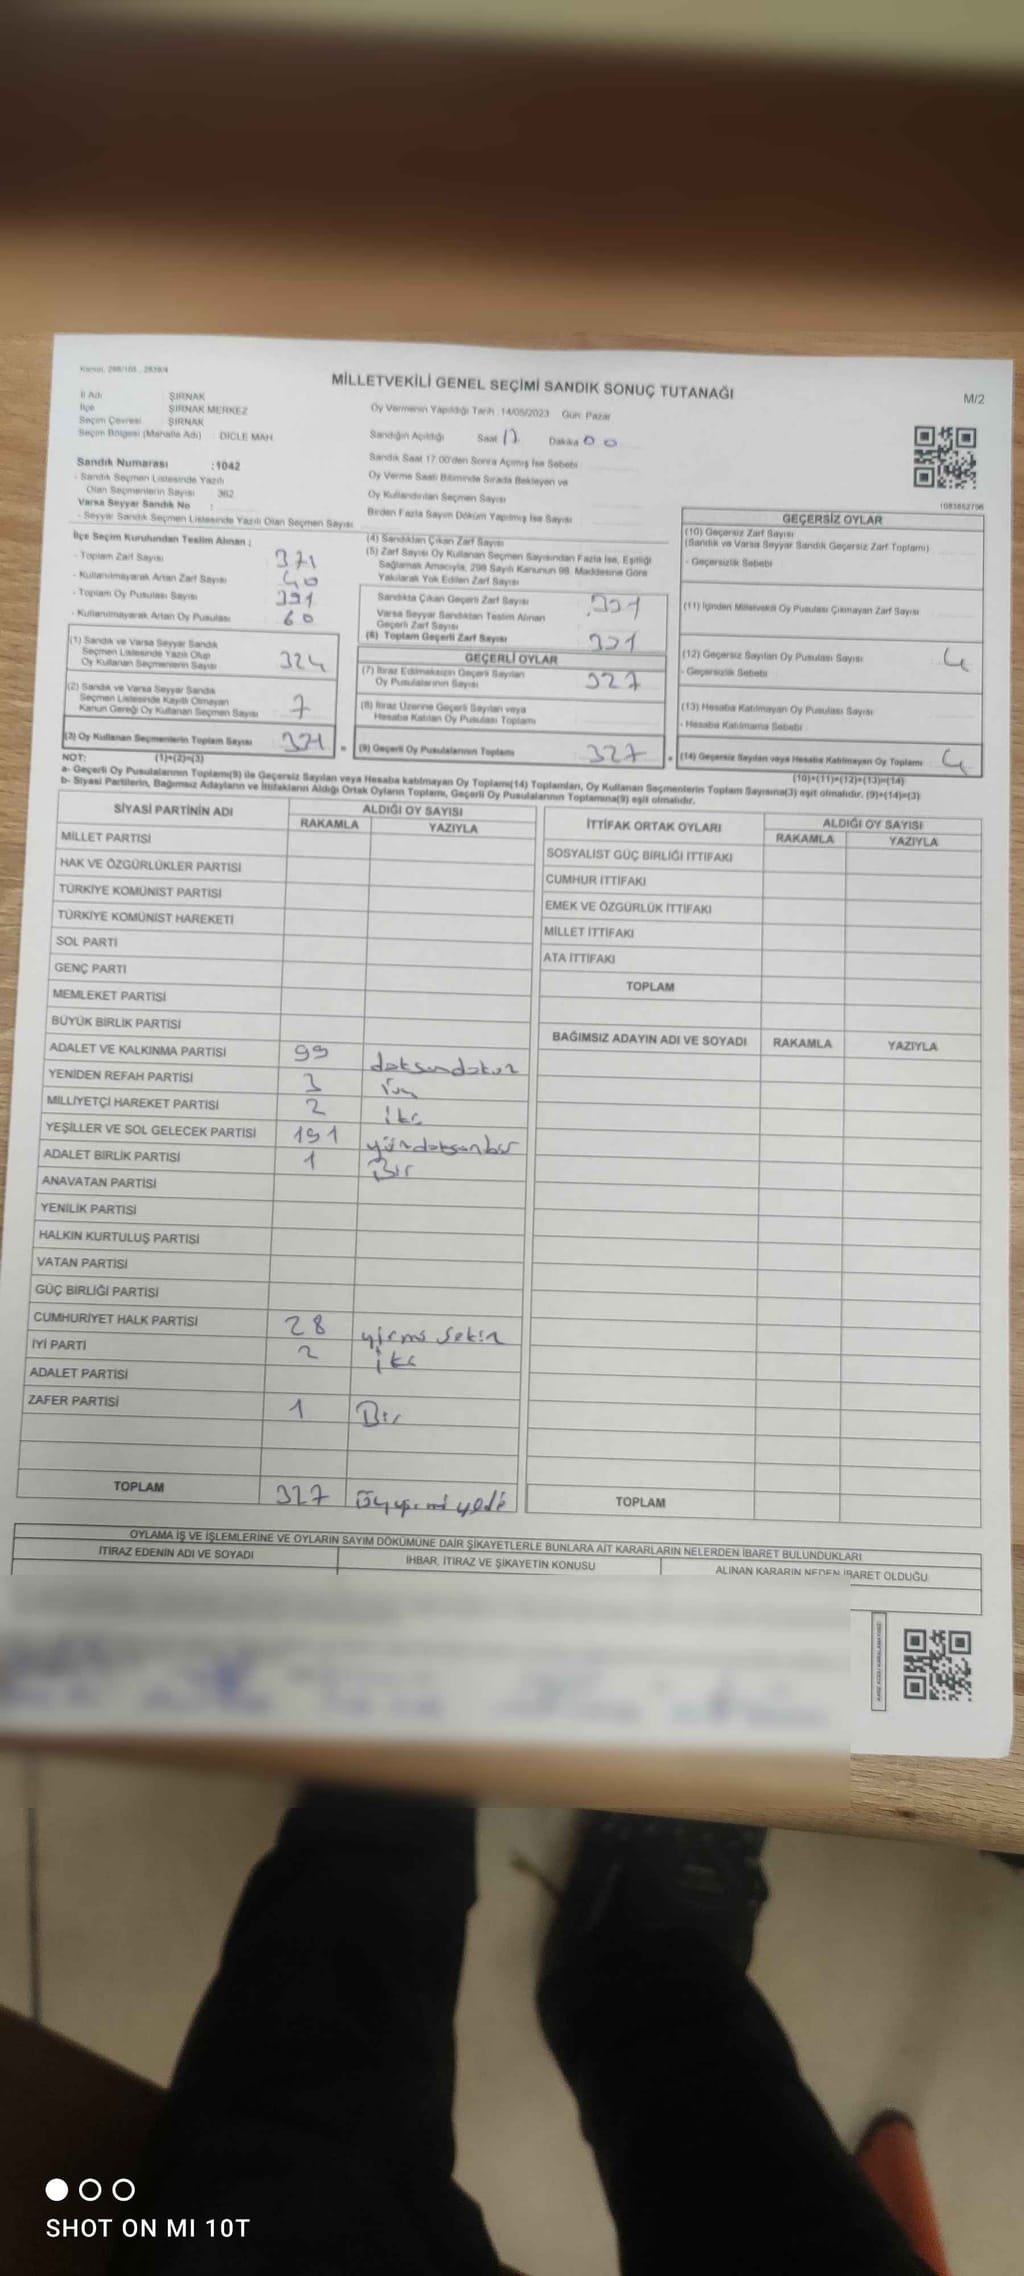 Kanun, 298/105 , 2839/4
MİLLETVEKİLİ GENEL SEÇİMİ SANDIK SONUÇ TUTANAĞI
M/2
İl Adı : ŞIRNAK
İlçe : ŞIRNAK MERKEZ
Seçim Çevresi : ŞIRNAK
Seçim Bölgesi (Mahalle Adı) : DİCLE MAH.
Sandık Numarası :1042
- Sandık Seçmen Listesinde Yazılı
Olan Seçmenlerin Sayısı 362
Varsa Seyyar Sandık No :
- Seyyar Sandık Seçmen Listesinde Yazılı Olan Seçmen Sayısı
Oy Vermenin Yapıldığı Tarih : 14/05/2023 Gün: Pazar
Sandığın Açıldığı Saat 17 Dakika 00
Sandık Saat 17:00'den Sonra Açımış İse Sebebi
Oy Verme Saati Bitiminde Sırada Bekleyen ve
Oy Kullandırılan Seçmen Sayısı
Birden Fazla Sayım Döküm Yapılmış İse Sayısı
İlçe Seçim Kurulundan Teslim Alınan :
- Toplam Zarf Sayısı 371
- Kullanılmayarak Artan Zarf Sayısı 40
- Toplam Oy Pusulası Sayısı 391
- Kullanılmayarak Artan Oy Pusulası 60
(1) Sandık ve Varsa Seyyar Sandık
Seçmen Listesinde Yazılı Olup
Oy Kullanan Seçmenlerin Sayısı 324
(2) Sandık ve Varsa Seyyar Sandık
Seçmen Listesinde Kayıtlı Olmayan
Kanun Gereği Oy Kullanan Seçmen Sayısı 7
(3) Oy Kullanan Seçmenlerin Toplam Sayısı 331
(4) Sandıktan Çıkan Zarf Sayısı
(5) Zarf Sayısı Oy Kullanan Seçmen Sayısından Fazla İse, Eşitliği
Sağlamak Amacıyla, 298 Sayılı Kanunun 98. Maddesine Göre
Yakılarak Yok Edilen Zarf Sayısı
Sandıkta Çıkan Geçerli Zarf Sayısı 331
Varsa Seyyar Sandıktan Teslim Alınan
Geçerli Zarf Sayısı
(6) Toplam Geçerli Zarf Sayısı 331
GEÇERLİ OYLAR
(7) İtiraz Edilmeksizin Geçerli Sayılan
Oy Pusulalarının Sayısı 327
(8) İtiraz Üzerine Geçerli Sayılan veya
Hesaba Katılan Oy Pusulası Toplamı
(9) Geçerli Oy Pusulalarının Toplamı 327
1083852706
GEÇERSİZ OYLAR
(10) Geçersiz Zarf Sayısı
(Sandık ve Varsa Seyyar Sandık Geçersiz Zarf Toplamı)
- Geçersizlik Sebebi
(11) İçinden Milletvekili Oy Pusulası Çıkmayan Zarf Sayısı
(12) Geçersiz Sayılan Oy Pusulası Sayısı 4
- Geçersizlik Sebebi
(13) Hesaba Katılmayan Oy Pusulası Sayısı
- Hesaba Katılmama Sebebi
(14) Geçersiz Sayılan veya Hesaba Katılmayan Oy Toplamı 4
NOT: (1)+(2)=(3)
(10)+(11)+(12)+(13)=(14)
a- Geçerli Oy Pusulalarının Toplamı(9) ile Geçersiz Sayılan veya Hesaba katılmayan Oy Toplamı(14) Toplamları, Oy Kullanan Seçmenlerin Toplam Sayısına(3) eşit olmalıdır. (9)+(14)=(3)
b- Siyasi Partilerin, Bağımsız Adayların ve İttifakların Aldığı Ortak Oyların Toplamı, Geçerli Oy Pusulalarının Toplamına(9) eşit olmalıdır.
SİYASİ PARTİNİN ADI ALDIĞI OY SAYISI
RAKAMLA YAZIYLA
MİLLET PARTİSİ
HAK VE ÖZGÜRLÜKLER PARTİSİ
TÜRKİYE KOMÜNİST PARTİSİ
TÜRKİYE KOMÜNİST HAREKETİ
SOL PARTİ
GENÇ PARTİ
MEMLEKET PARTİSİ
BÜYÜK BİRLİK PARTİSİ
ADALET VE KALKINMA PARTİSİ 99 doksandokuz
YENİDEN REFAH PARTİSİ 3
MİLLİYETÇİ HAREKET PARTİSİ 2 iki
YEŞİLLER VE SOL GELECEK PARTİSİ 191 yüzdoksanbir
ADALET BİRLİK PARTİSİ 1 Bir
ANAVATAN PARTİSİ
YENİLİK PARTİSİ
HALKIN KURTULUŞ PARTİSİ
VATAN PARTİSİ
GÜÇ BİRLİĞİ PARTİSİ
CUMHURİYET HALK PARTİSİ 28 yirmi sekiz
İYİ PARTİ 2 iki
ADALET PARTİSİ
ZAFER PARTİSİ 1 Bir
TOPLAM 327
İTTİFAK ORTAK OYLARI ALDIĞI OY SAYISI
RAKAMLA YAZIYLA
SOSYALİST GÜÇ BİRLİĞİ İTTİFAKI
CUMHUR İTTİFAKI
EMEK VE ÖZGÜRLÜK İTTİFAKI
MİLLET İTTİFAKI
ATA İTTİFAKI
TOPLAM
BAĞIMSIZ ADAYIN ADI VE SOYADI RAKAMLA YAZIYLA
TOPLAM
OYLAMA İŞ VE İŞLEMLERİNE VE OYLARIN SAYIM DÖKÜMÜNE DAİR ŞİKAYETLERLE BUNLARA AİT KARARLARIN NELERDEN İBARET BULUNDUKLARI
İTİRAZ EDENİN ADI VE SOYADI İHBAR, İTİRAZ VE ŞİKAYETİN KONUSU ALINAN KARARIN NEDEN İBARET OLDUĞU
SHOT ON MI 10T